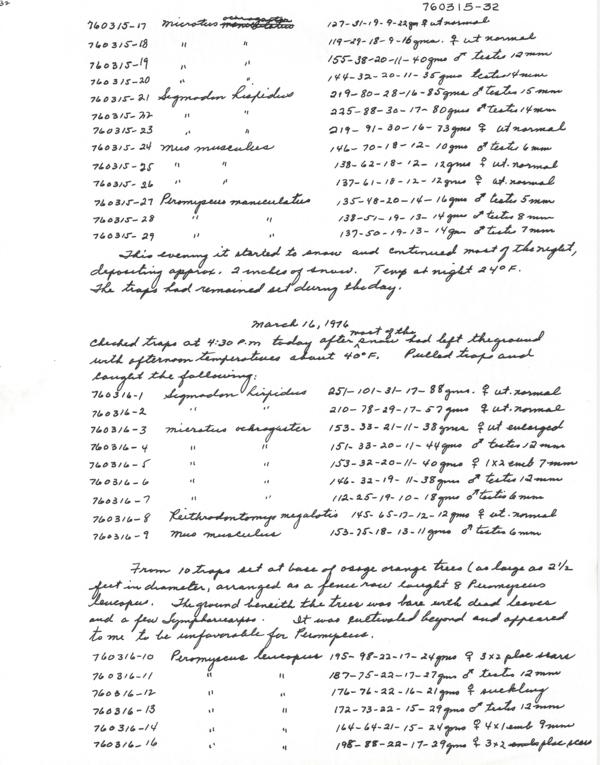 32
760315-32
760315-17 Microtus ochrogaster maniculatus 127-31-19-9-22gm ♀ ut normal
760315-18 " " 119-29-18-9-16gms. ♀ ut normal
760315-19 " " 155-38-20-11-40gms ♂ testes 12mm
760315-20 " " 144-32-20-11-35gms testes 4mm
760315-21 Sigmodon hispidus 219-80-28-16-85gms ♂ testes 15mm
760315-22 " " 225-88-30-17-80gms ♂ testes 14mm
760315-23 " " 219-91-30-16-73gms ♀ ut normal
760315-24 Mus musculus 146-70-18-12-10gms ♂ testes 6mm
760315-25 " " 138-62-18-12-12gms ♀ ut. normal
760315-26 " " 137-61-18-12-12gms ♀ ut. normal
760315-27 Peromyscus maniculatus 135-48-20-14-16gms ♂ testes 5mm
760315-28 " " 138-51-19-13-14gms ♂ testes 8mm
760315-29 " " 137-50-19-13-14gms ♂ testes 7mm
This evening it started to snow and continued most of the night,
depositing approx. 2 inches of snow. Temp at night 24°F.
The traps had remained set during the day.
March 16, 1976
Checked traps at 4:30 P.M today after most of the snow had left the ground
with afternoon temperatures about 40°F. Pulled traps and
caught the following:
760316-1 Sigmodon hispidus 251-101-31-17-88gms. ♀ ut. normal
760316-2 " " 210-78-29-17-57gms ♀ ut. normal
760316-3 Microtus ochrogaster 153-33-21-11-38gms ♀ ut enlarged
760316-4 " " 151-33-20-11-44gms ♂ testes 12mm
760316-5 " " 153-32-20-11-40gms ♀ 1x2 emb 7mm
760316-6 " " 146-32-19-11-38gms ♂ testes 12mm
760316-7 " " 112-25-19-10-18gms ♂ testes 6mm
760316-8 Reithrodontomys megalotis 145-65-17-12-12gms ♀ ut. normal
760316-9 Mus musculus 153-75-18-13-11gms ♂ testes 6mm
From 10 traps set at base of osage orange trees (as large as 2½
feet in diameter, arranged as a fence row caught 8 Peromyscus
leucopus. The ground beneith the trees was bare with dead leaves
and a few Symphoricarpos. It was cultivated beyond and appeared
to me to be unfavorable for Peromyscus.
760316-10 Peromyscus leucopus 195-98-22-17-24gms ♀ 3x2 plac scars
760316-11 " " 187-75-22-17-27gms ♂ testes 12mm
760316-12 " " 176-76-22-16-21gms ♀ suckling
760316-13 " " 172-73-22-15-29gms ♂ testes 12mm
760316-14 " " 164-64-21-15-24gms ♀ 4x1 emb 9mm
760316-16 " " 198-88-22-17-29gms ♀ 3x2 embs plac scars